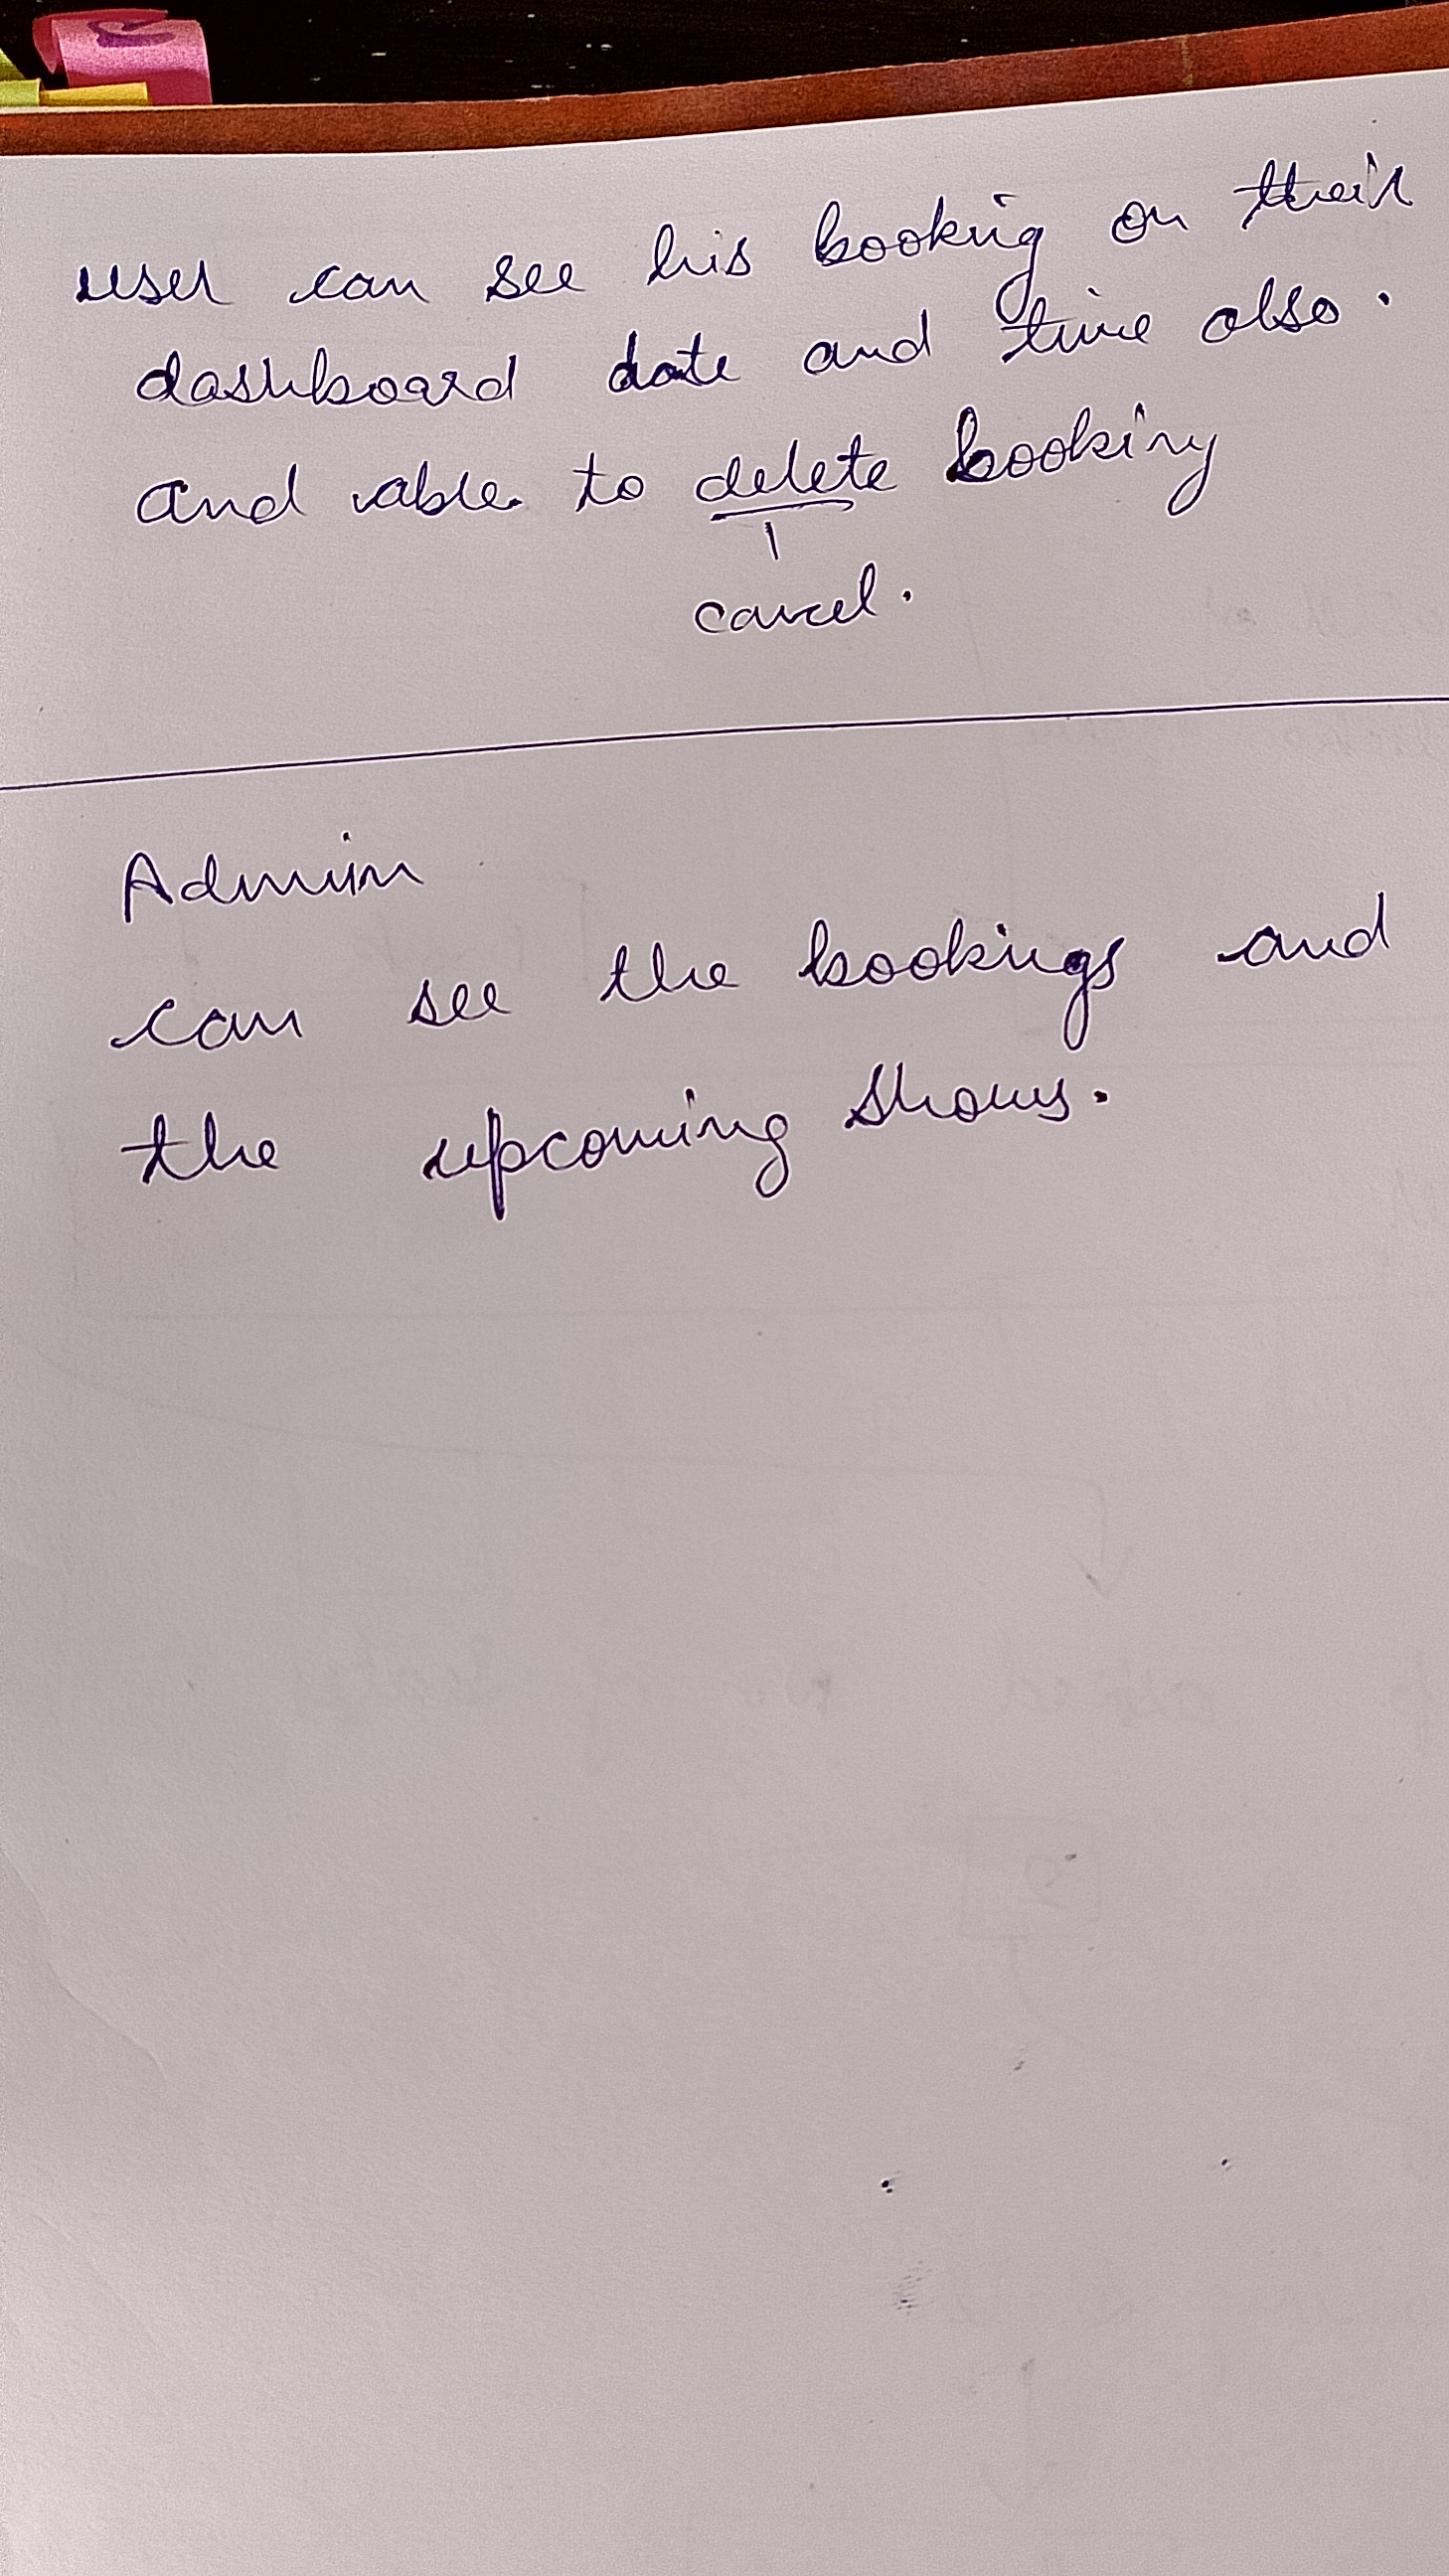 user can see his booking on their
dashboard date and time also.
and able to delete booking
cancel.
Admin
can see the bookings and
the upcoming shows.